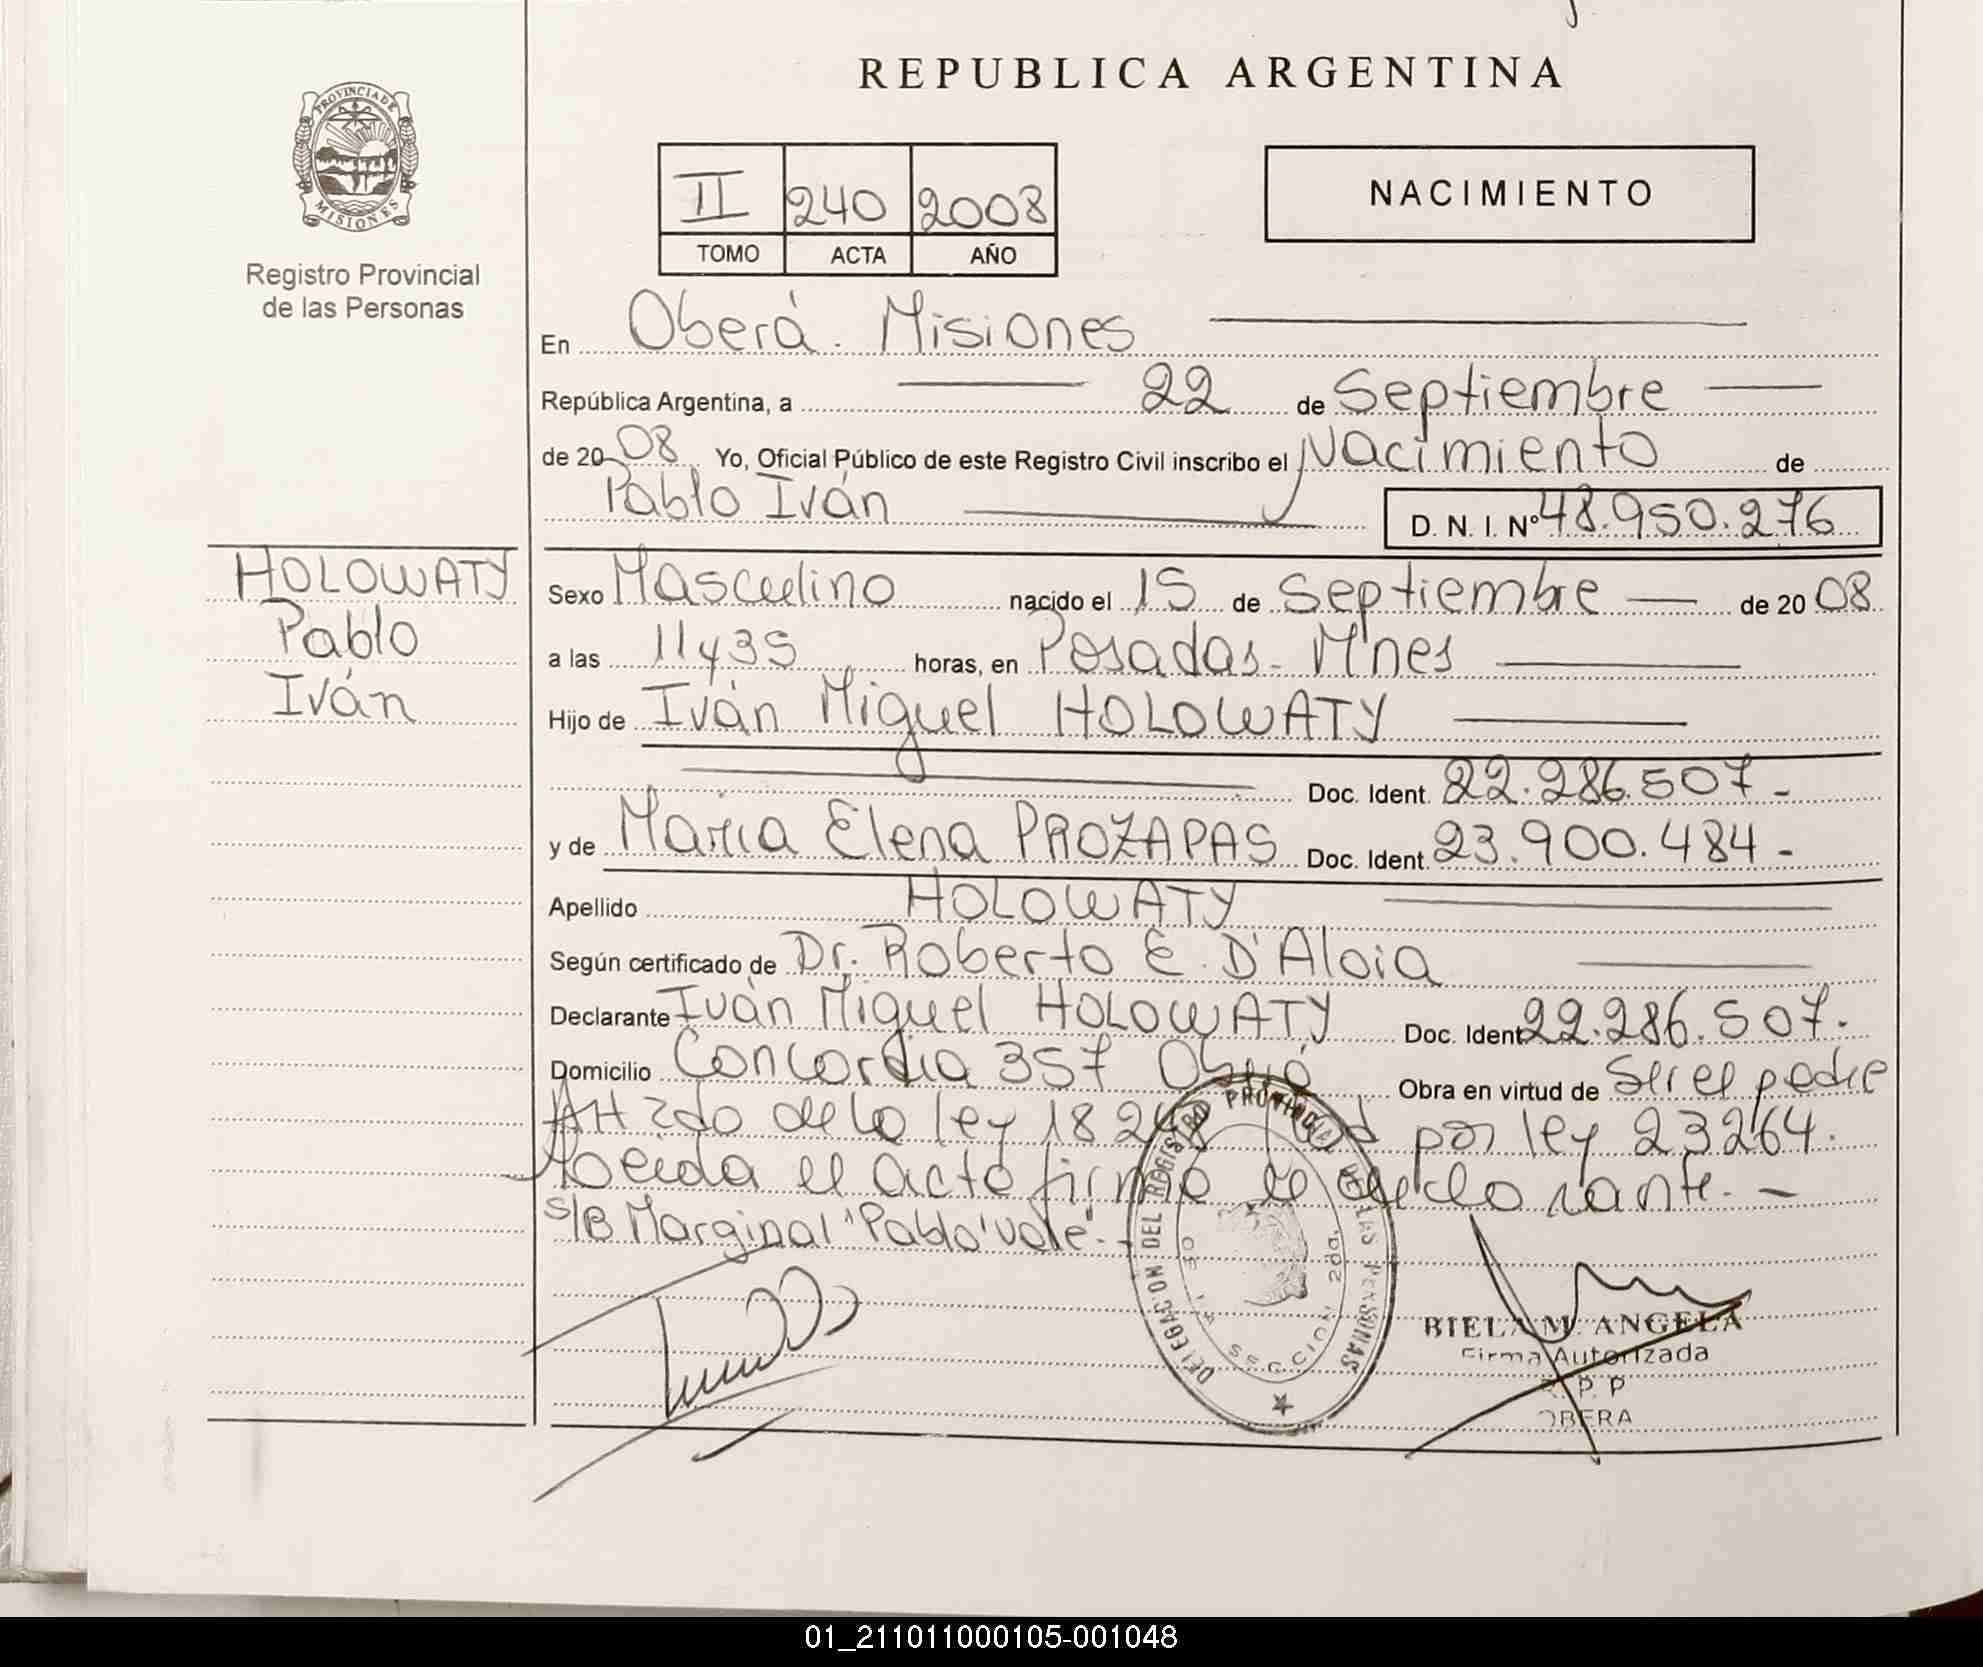 REPUBLICA ARGENTINA
PROVINCIA DE MISIONES
Registro Provincial
de las Personas
II 240 2008
TOMO ACTA AÑO
NACIMIENTO
En Oberá. Misiones
República Argentina, a 22 de Septiembre
de 2008 Yo, Oficial Público de este Registro Civil inscribo el Nacimiento de
Pablo Iván D. N. I. Nº 48.950.276
HOLOWATY
Pablo
Iván
Sexo Masculino nacido el 15 de Septiembre de 2008
a las 11 y 35 horas, en Posadas - Mnes
Hijo de Iván Miguel HOLOWATY
Doc. Ident. 22.286.507-
y de María Elena PROZAPAS Doc. Ident. 23.900.484-
Apellido HOLOWATY
Según certificado de Dr. Roberto E. D'Aloia
Declarante Iván Miguel HOLOWATY Doc. Ident. 22.286.507.
Domicilio Concordia 357 Oberá Obra en virtud de Ser el padre
Art 2do de la ley 18248 por ley 23264.
Leida el acta firmó el declarante. -
S/B Marginal "Pablo" vale. -
DELEGACION DEL REGISTRO PROVINCIAL DE LAS PERSONAS
DE LA SECCION 2da.
BIELA M. ANGELA
Firma Autorizada
R. P. P
OBERA
01_211011000105-001048